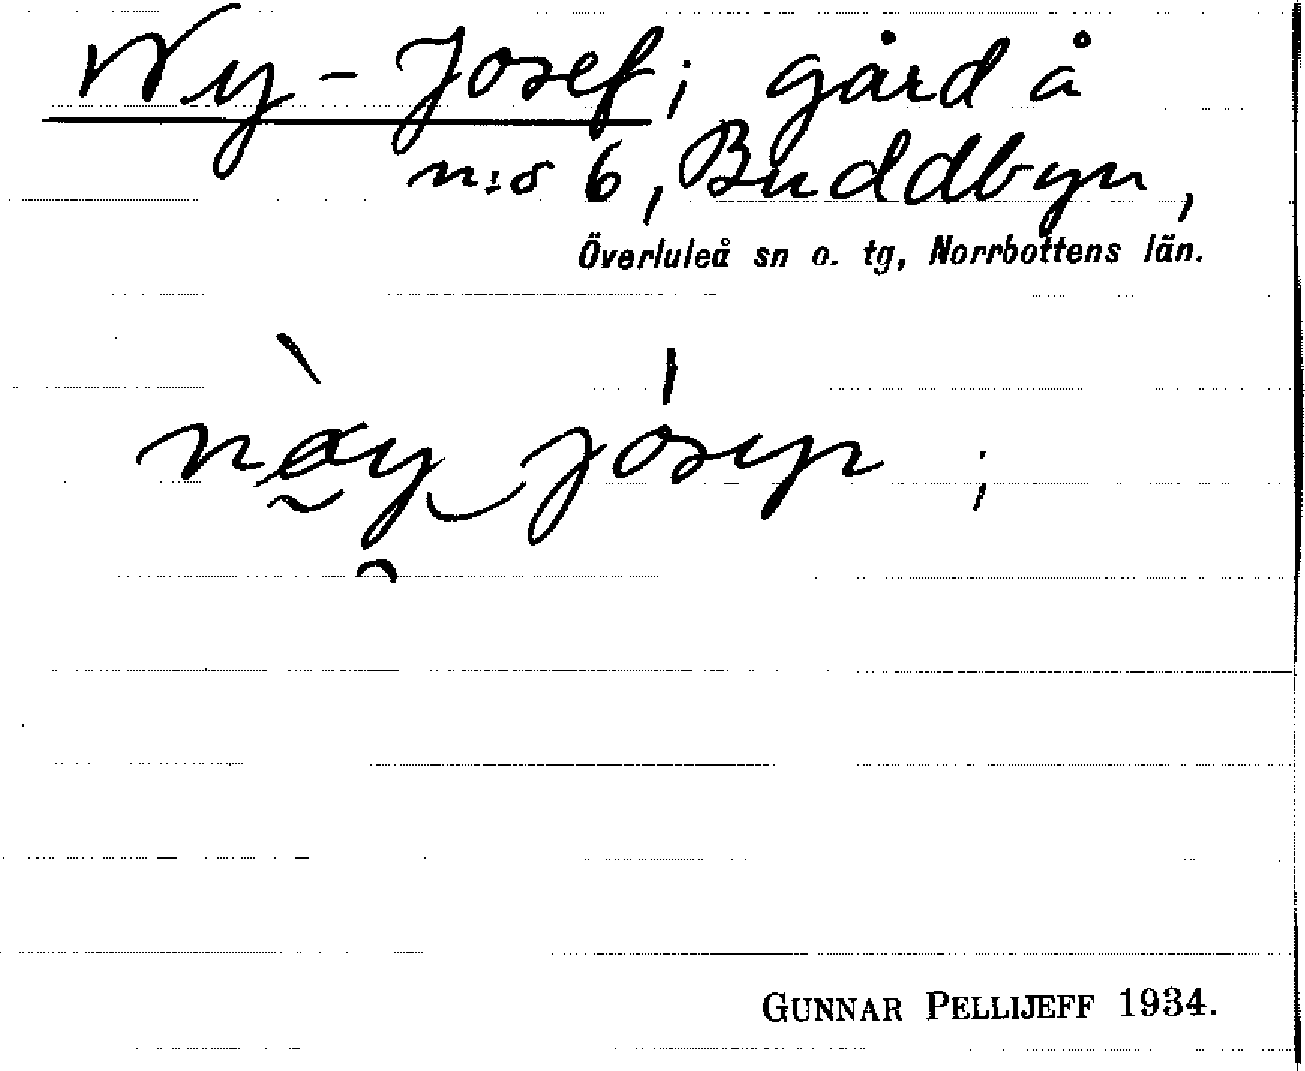 Ny-Josef; gård å
n:o 6, Buddbyn,
Överluleå sn o. tg, Norrbottens län.
GUNNAR PELLIJEFF 1934.